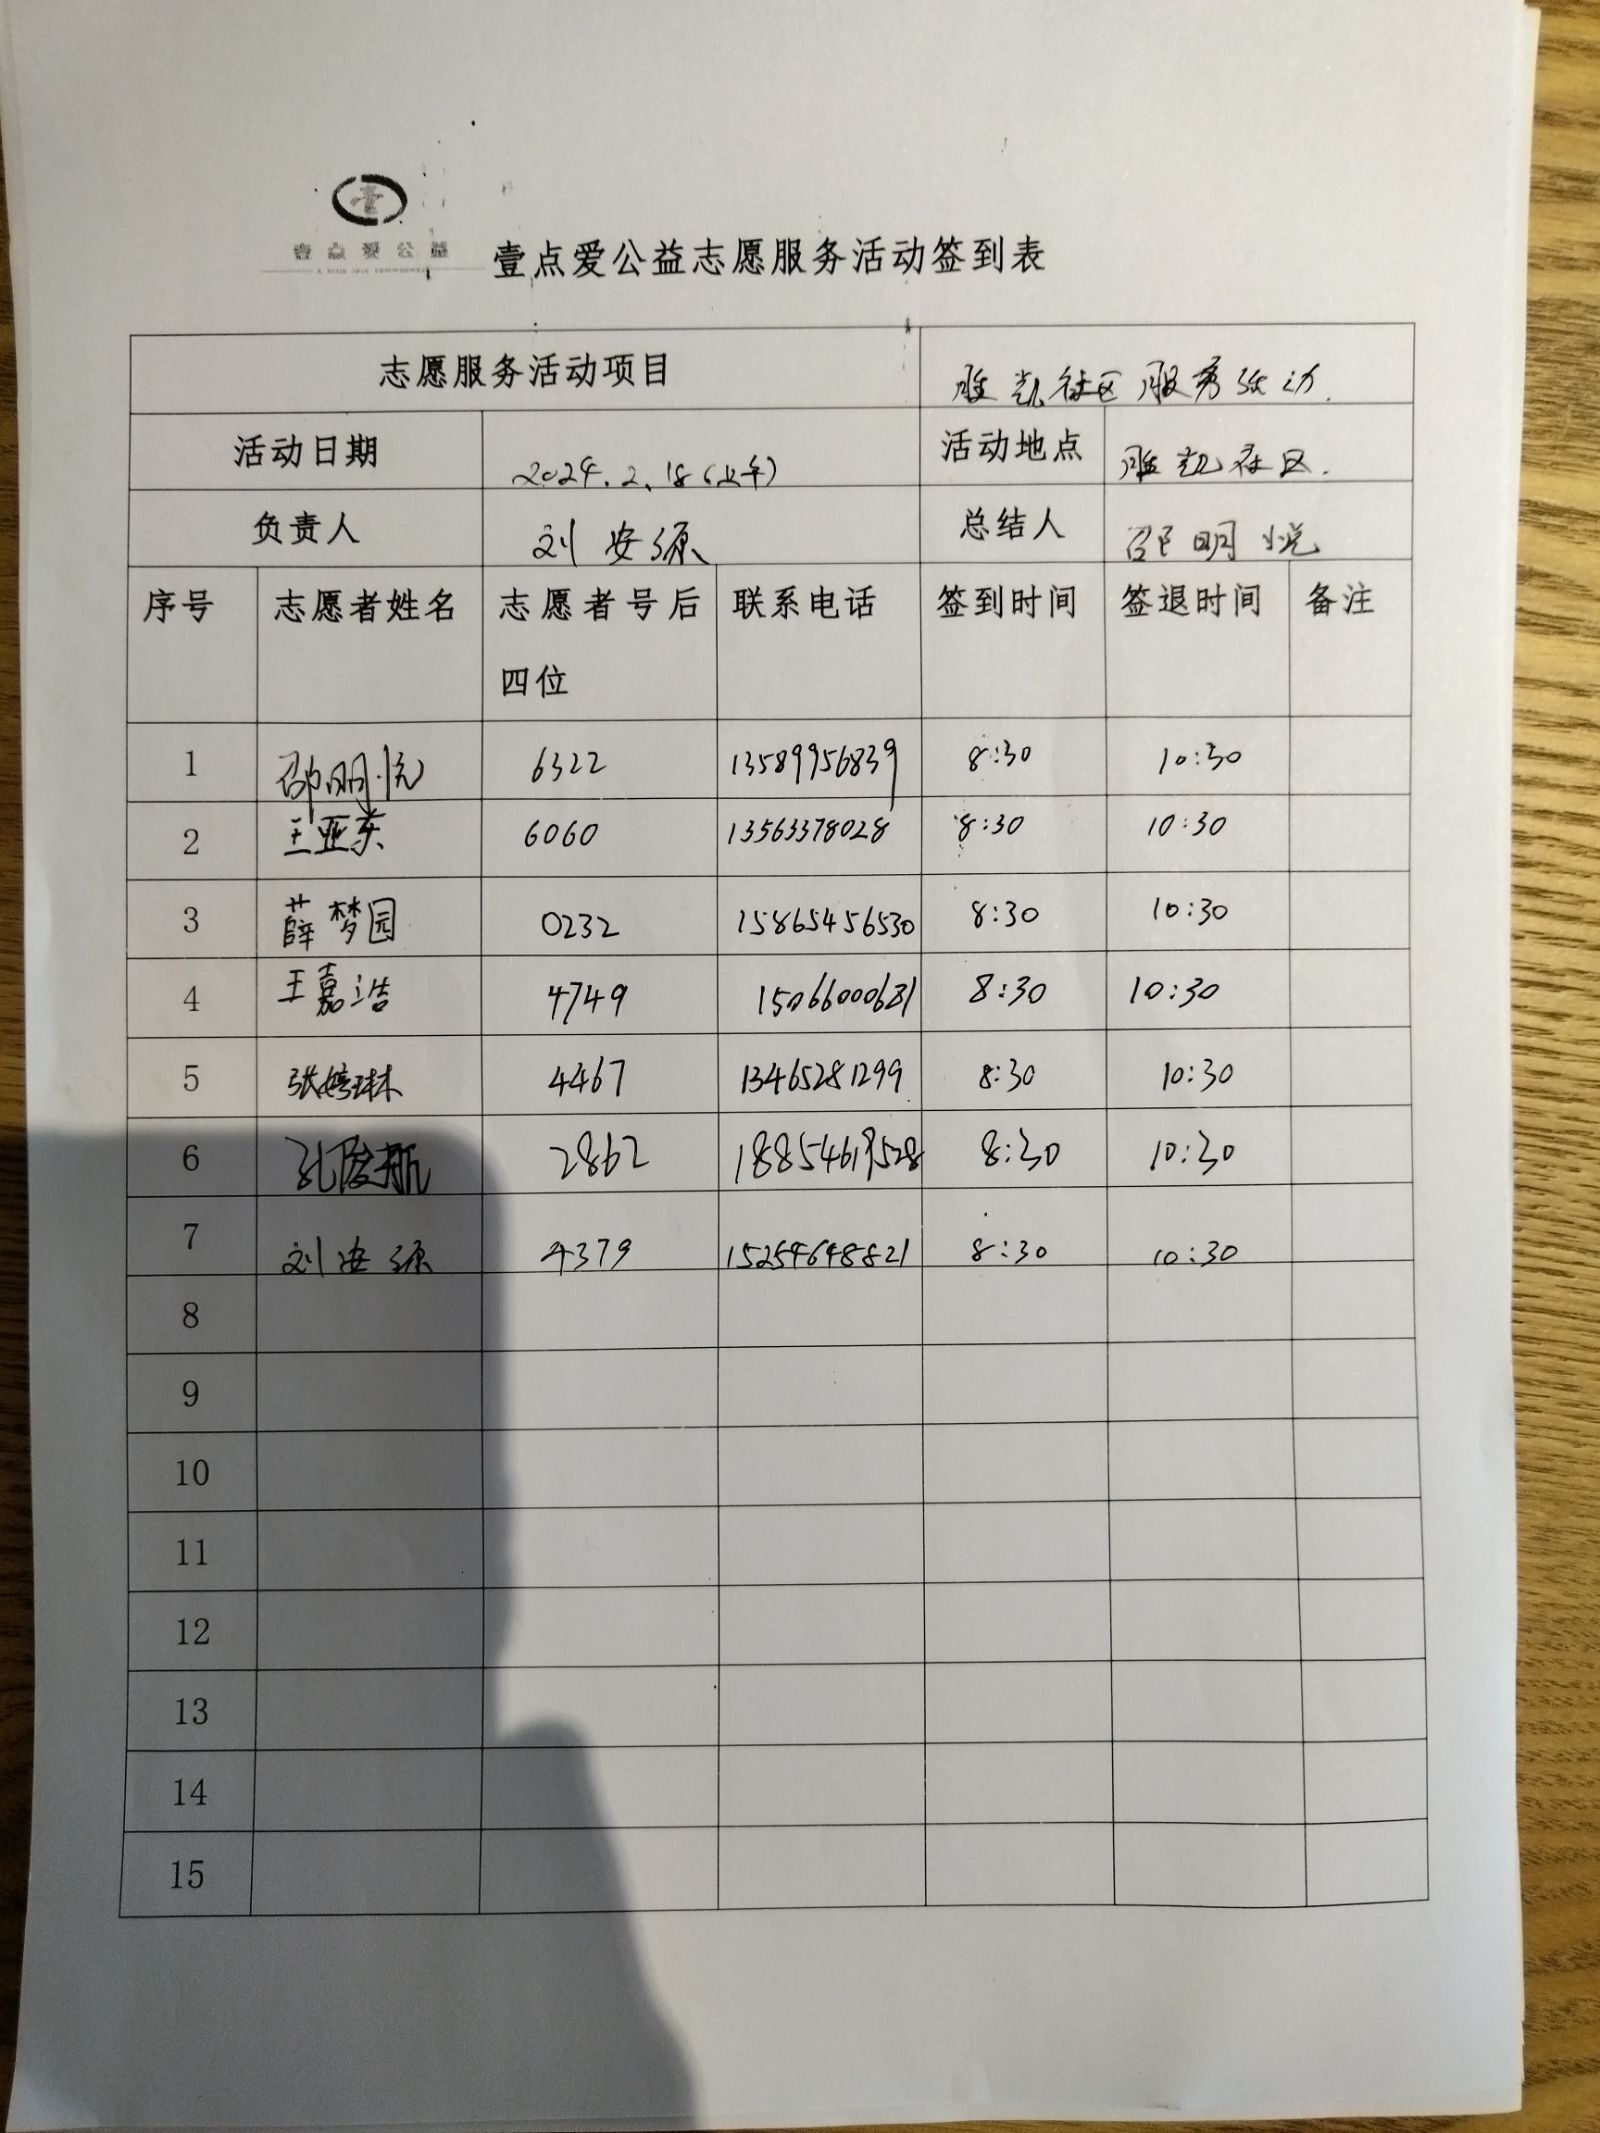 壹点爱公益
壹点爱公益志愿服务活动签到表
志愿服务活动项目 胜凯社区服务活动.
活动日期 2024.2.18(上午) 活动地点 胜凯社区.
负责人 刘安源 总结人 邵明悦
序号 志愿者姓名 志愿者号后四位 联系电话 签到时间 签退时间 备注
1 邵明悦 6322 13589956839 8:30 10:30
2 王亚东 6060 13563378028 8:30 10:30
3 薛梦园 0232 15865456530 8:30 10:30
4 王嘉浩 4749 8:30 10:30
5 张婷琳 4467 13465281299 8:30 10:30
6 孔俊航 2862 8:30 10:30
7 刘安源 4379 15254648821 8:30 10:30
8
9
10
11
12
13
14
15